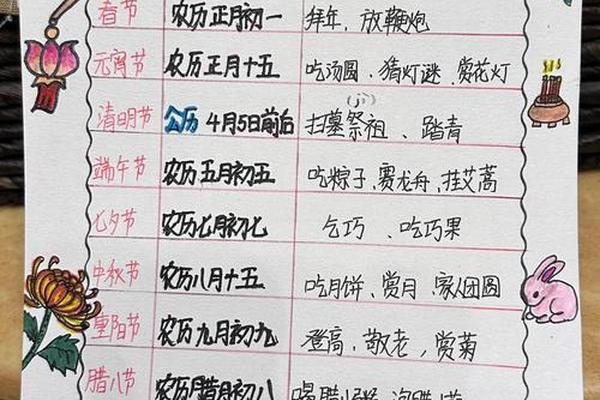 春节 农历正月初一 拜年、放鞭炮
元宵节 农历正月十五 吃汤圆、猜灯谜、赏花灯
清明节 公历4月5日前后 扫墓祭祖、踏青
端午节 农历五月初五 吃粽子、赛龙舟、挂艾蒿
七夕节 农历七月初七 乞巧、吃巧果
中秋节 农历八月十五 吃月饼、赏月、家人团圆
重阳节 农历九月初九 登高、敬老、赏菊
腊八节 农历腊月初八 喝腊八粥、泡腊八蒜